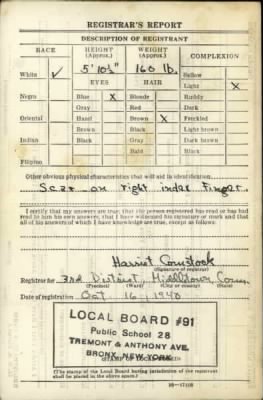 REGISTRAR'S REPORT
DESCRIPTION OF REGISTRANT
RACE HEIGHT (Approx.) WEIGHT (Approx.) COMPLEXION
White ✓ 5' 10½" 160 lb. Sallow
EYES HAIR Light X
Negro Blue X Blonde Ruddy
Gray Red Dark
Oriental Hazel Brown X Freckled
Brown Black Light brown
Indian Black Gray Dark brown
Bald Black
Filipino
Other obvious physical characteristics that will aid in identification
Scar on right index Finger
I certify that my answers are true; that the person registered has read or has had
read to him his own answers; that I have witnessed his signature or mark and that
all of his answers of which I have knowledge are true, except as follows:
Harriet Comstock
(Signature of registrar)
Registrar for 3rd District, Conn.
(Precinct) (Ward) (City or county) (State)
Date of registration Oct 16, 1940
LOCAL BOARD #91
Public School 28
TREMONT & ANTHONY AVE.
BRONX, NEW YORK
(STAMP OF LOCAL BOARD)
(The stamp of the Local Board having jurisdiction of the registrant
shall be placed in the above space.)